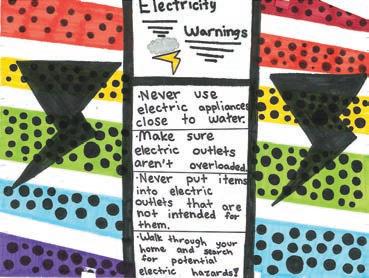 Electricity
Warnings
·Never use
electric appliances
close to water.
·Make sure
electric outlets
aren't overloaded.
·Never put items
into electric
outlets that are
not intended for
them.
·Walk through your
home and search
for potential
electric hazards!